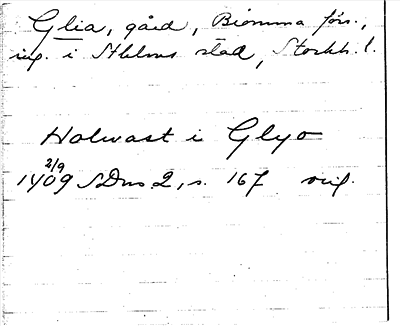 Glia, gård, Bromma förs.,
ing. i Sthlms stad, Stockh. l.
Holwast i Glyo
2/9
1409 SDns 2, s. 167 orig.